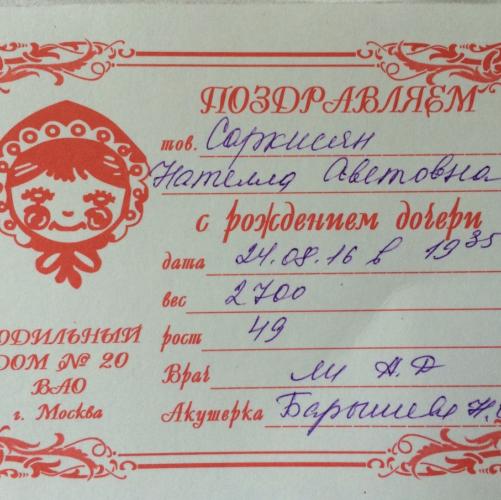 ПОЗДРАВЛЯЕМ
тов. Саркисян
Нателла Аветовна
с рождением дочери
дата 24.08.16 в 19 35
вес 2700
рост 49
Врач Ли А.Д
Акушерка Барышева Н.
ОДИЛЬНЫЙ
ДОМ № 20
ВАО
г. Москва